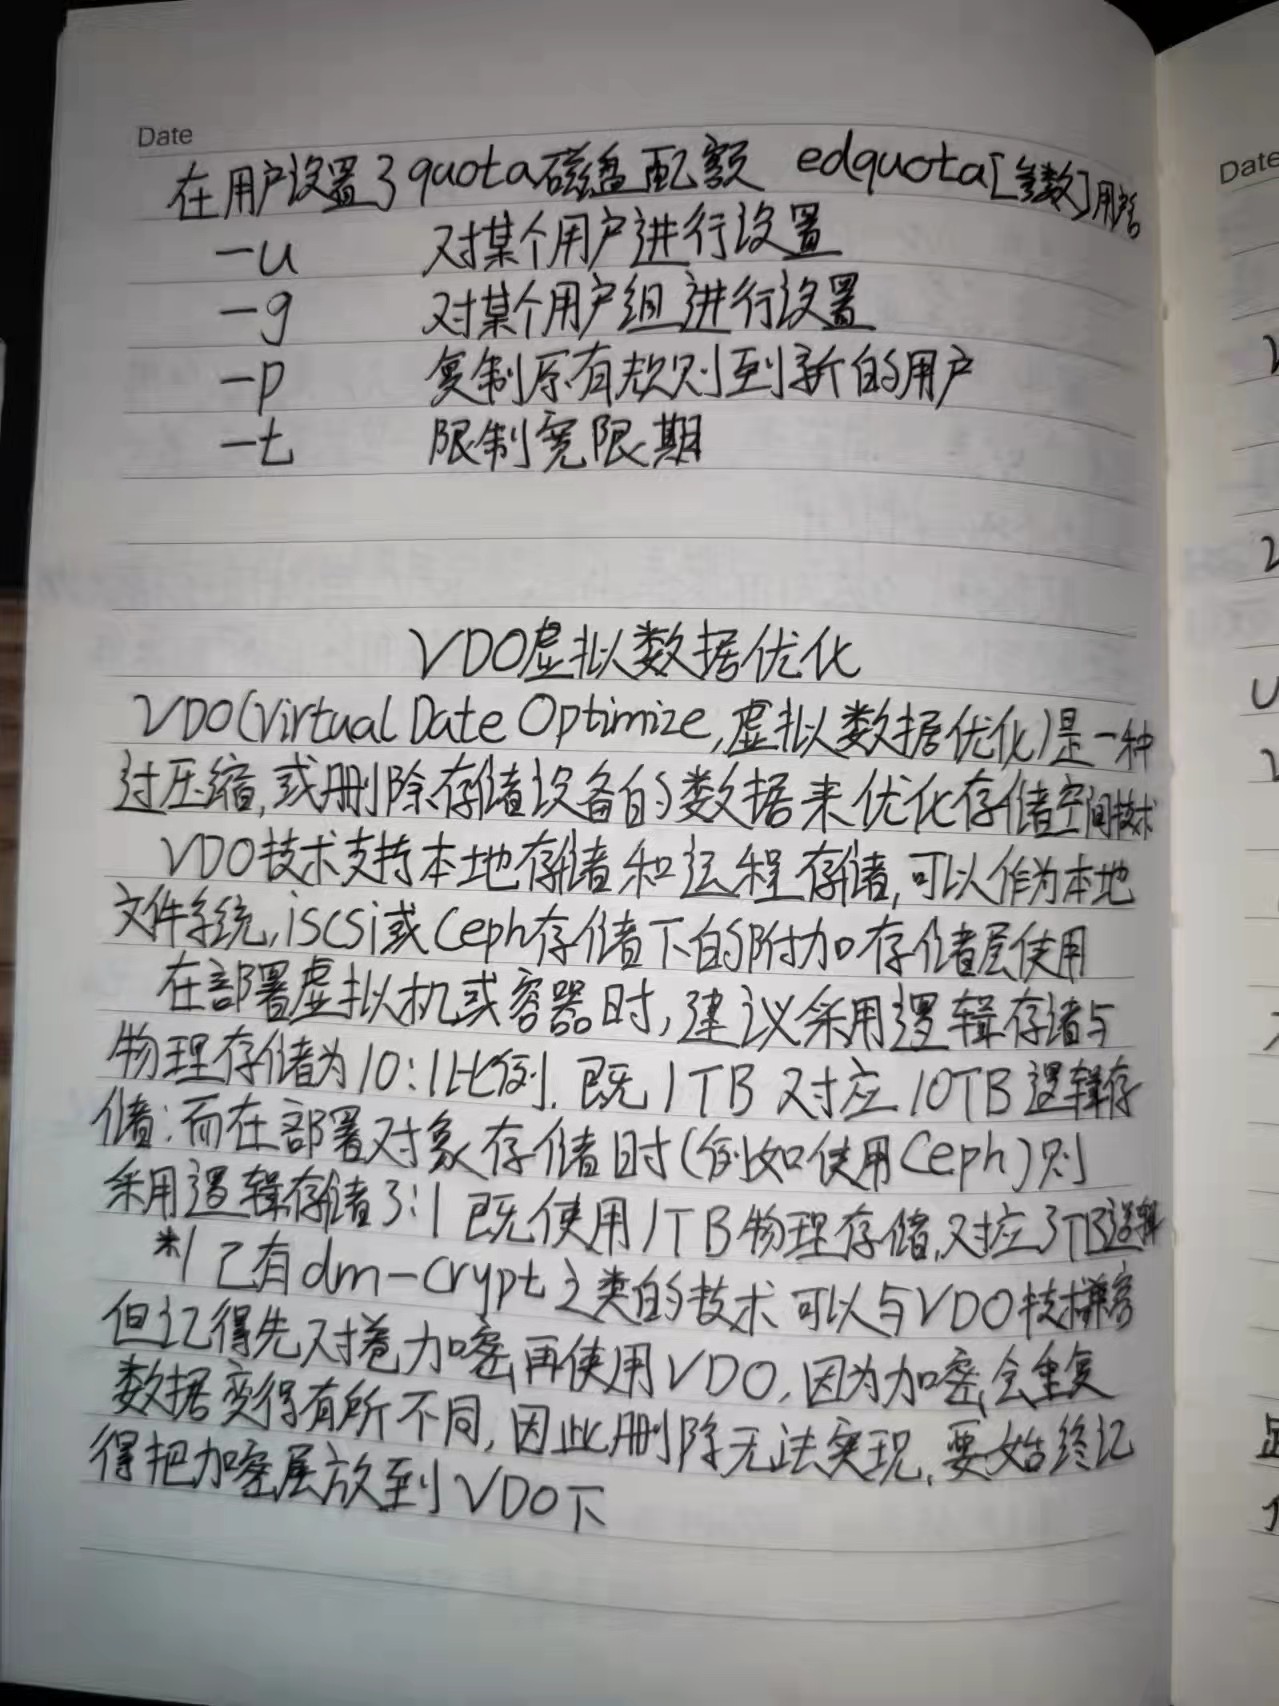 Date
在用户设置了quota磁盘配额 edquota[参数]用户名
-u 对某个用户进行设置
-g 对某个用户组进行设置
-p 复制原有规则到新的用户
-t 限制宽限期
VDO虚拟数据优化
VDO(Virtual Date Optimize,虚拟数据优化)是一种
过压缩,或删除存储设备的数据来优化存储空间技术
VDO技术支持本地存储和远程存储,可以作为本地
文件系统,iscsi或Ceph存储下的附加存储层使用
在部署虚拟机或容器时,建议采用逻辑存储与
物理存储为10:1比例.既1TB对应10TB逻辑存
储;而在部署对象存储时(例如使用Ceph)则
采用逻辑存储3:1既使用1TB物理存储,对应3TB逻辑
*1 已有dm-crypt之类的技术可以与VDO技术兼容
但记得先对卷加密再使用VDO,因为加密会重复
数据变得有所不同,因此删除无法实现.要始终记
得把加密层放到VDO下
Date